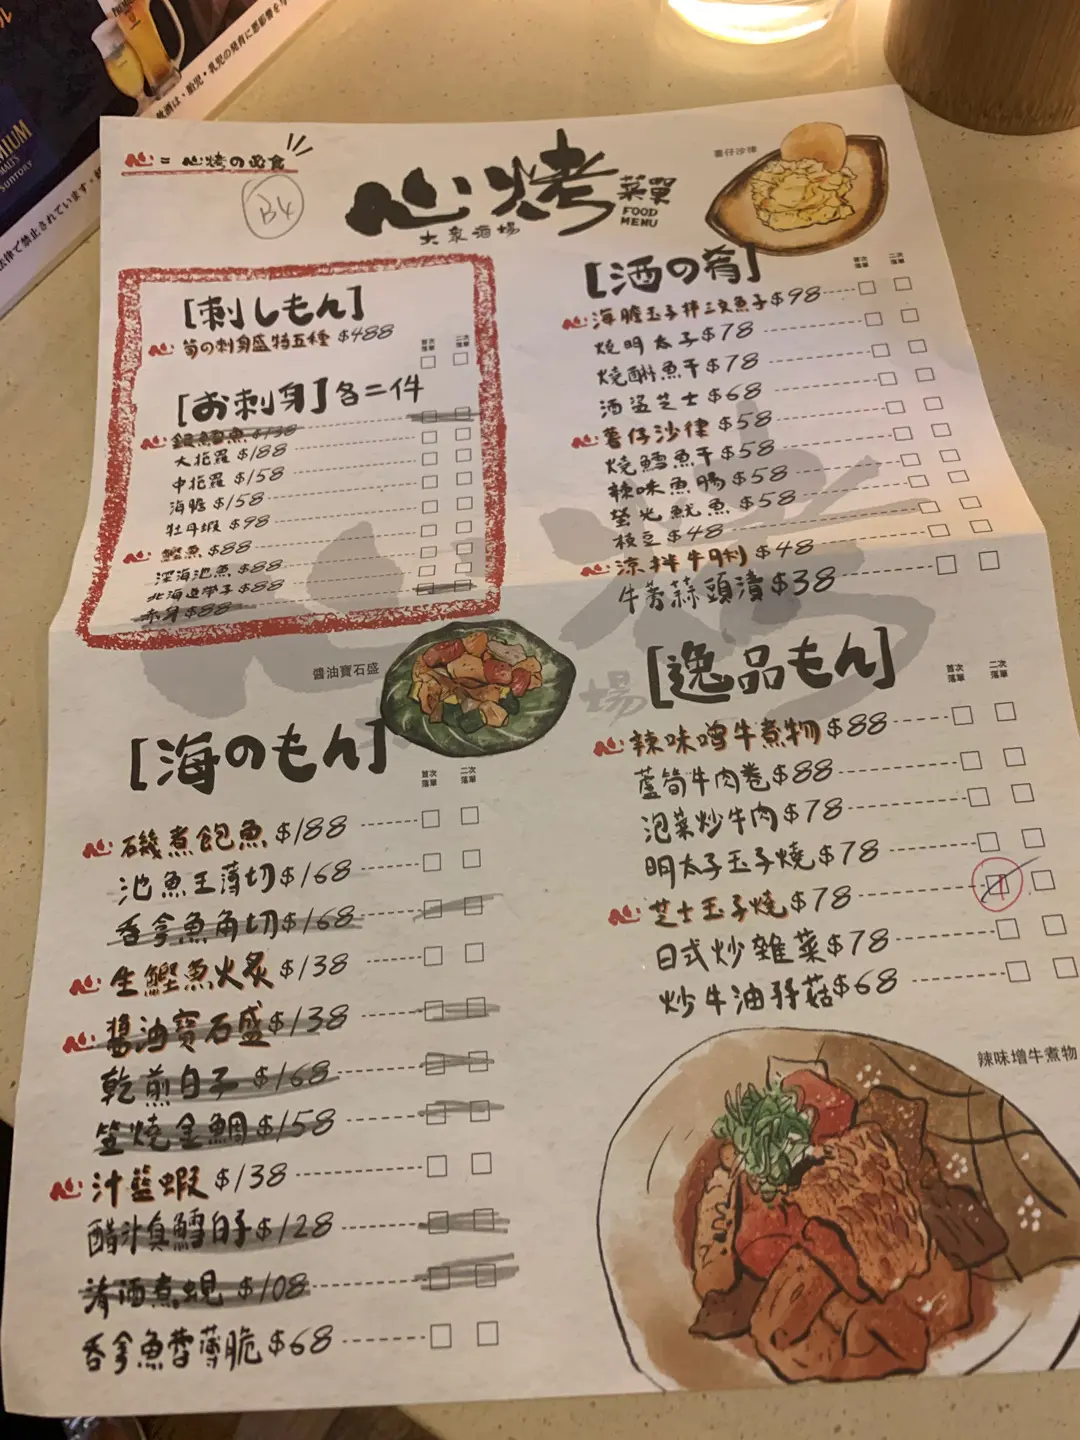 PREMIUM
MALT'S
SUNTORY
心 = 心烤の必食
B4
心烤
大衆酒場
菜單
FOOD
MENU
薯仔沙律
[刺しもん]
首次落單 二次落單
心 旬の刺身盛特五種 $488
[お刺身] 各二件
心 銀鱈魚 $138
大拖羅 $188
中拖羅 $158
海膽 $158
牡丹蝦 $98
心 鰹魚 $88
深海池魚 $88
北海道帶子 $88
赤身 $88
[酒の肴]
首次落單 二次落單
心 海膽玉子拌三文魚子 $98
燒明太子 $78
燒魚干 $78
酒盜芝士 $68
心 薯仔沙律 $58
燒鱈魚干 $58
辣味魚腸 $58
螢光魷魚 $58
枝豆 $48
心 涼拌牛脷 $48
牛蒡蒜頭漬 $38
醬油寶石盛
場
[海のもん]
首次落單 二次落單
心 磯煮鮑魚 $188
池魚王薄切 $168
吞拿魚角切 $168
心 生鰹魚火炙 $138
心 醬油寶石盛 $138
乾煎白子 $168
燒金鯛 $158
心 汁籃蝦 $138
醋汁真鱈白子 $128
清酒煮蜆 $108
吞拿魚蓉薄脆 $68
[逸品もん]
首次落單 二次落單
心 辣味噌牛煮物 $88
蘆筍牛肉卷 $88
泡菜炒牛肉 $78
明太子玉子燒 $78
心 芝士玉子燒 $78
日式炒雜菜 $78
炒牛油野菇 $68
辣味增牛煮物